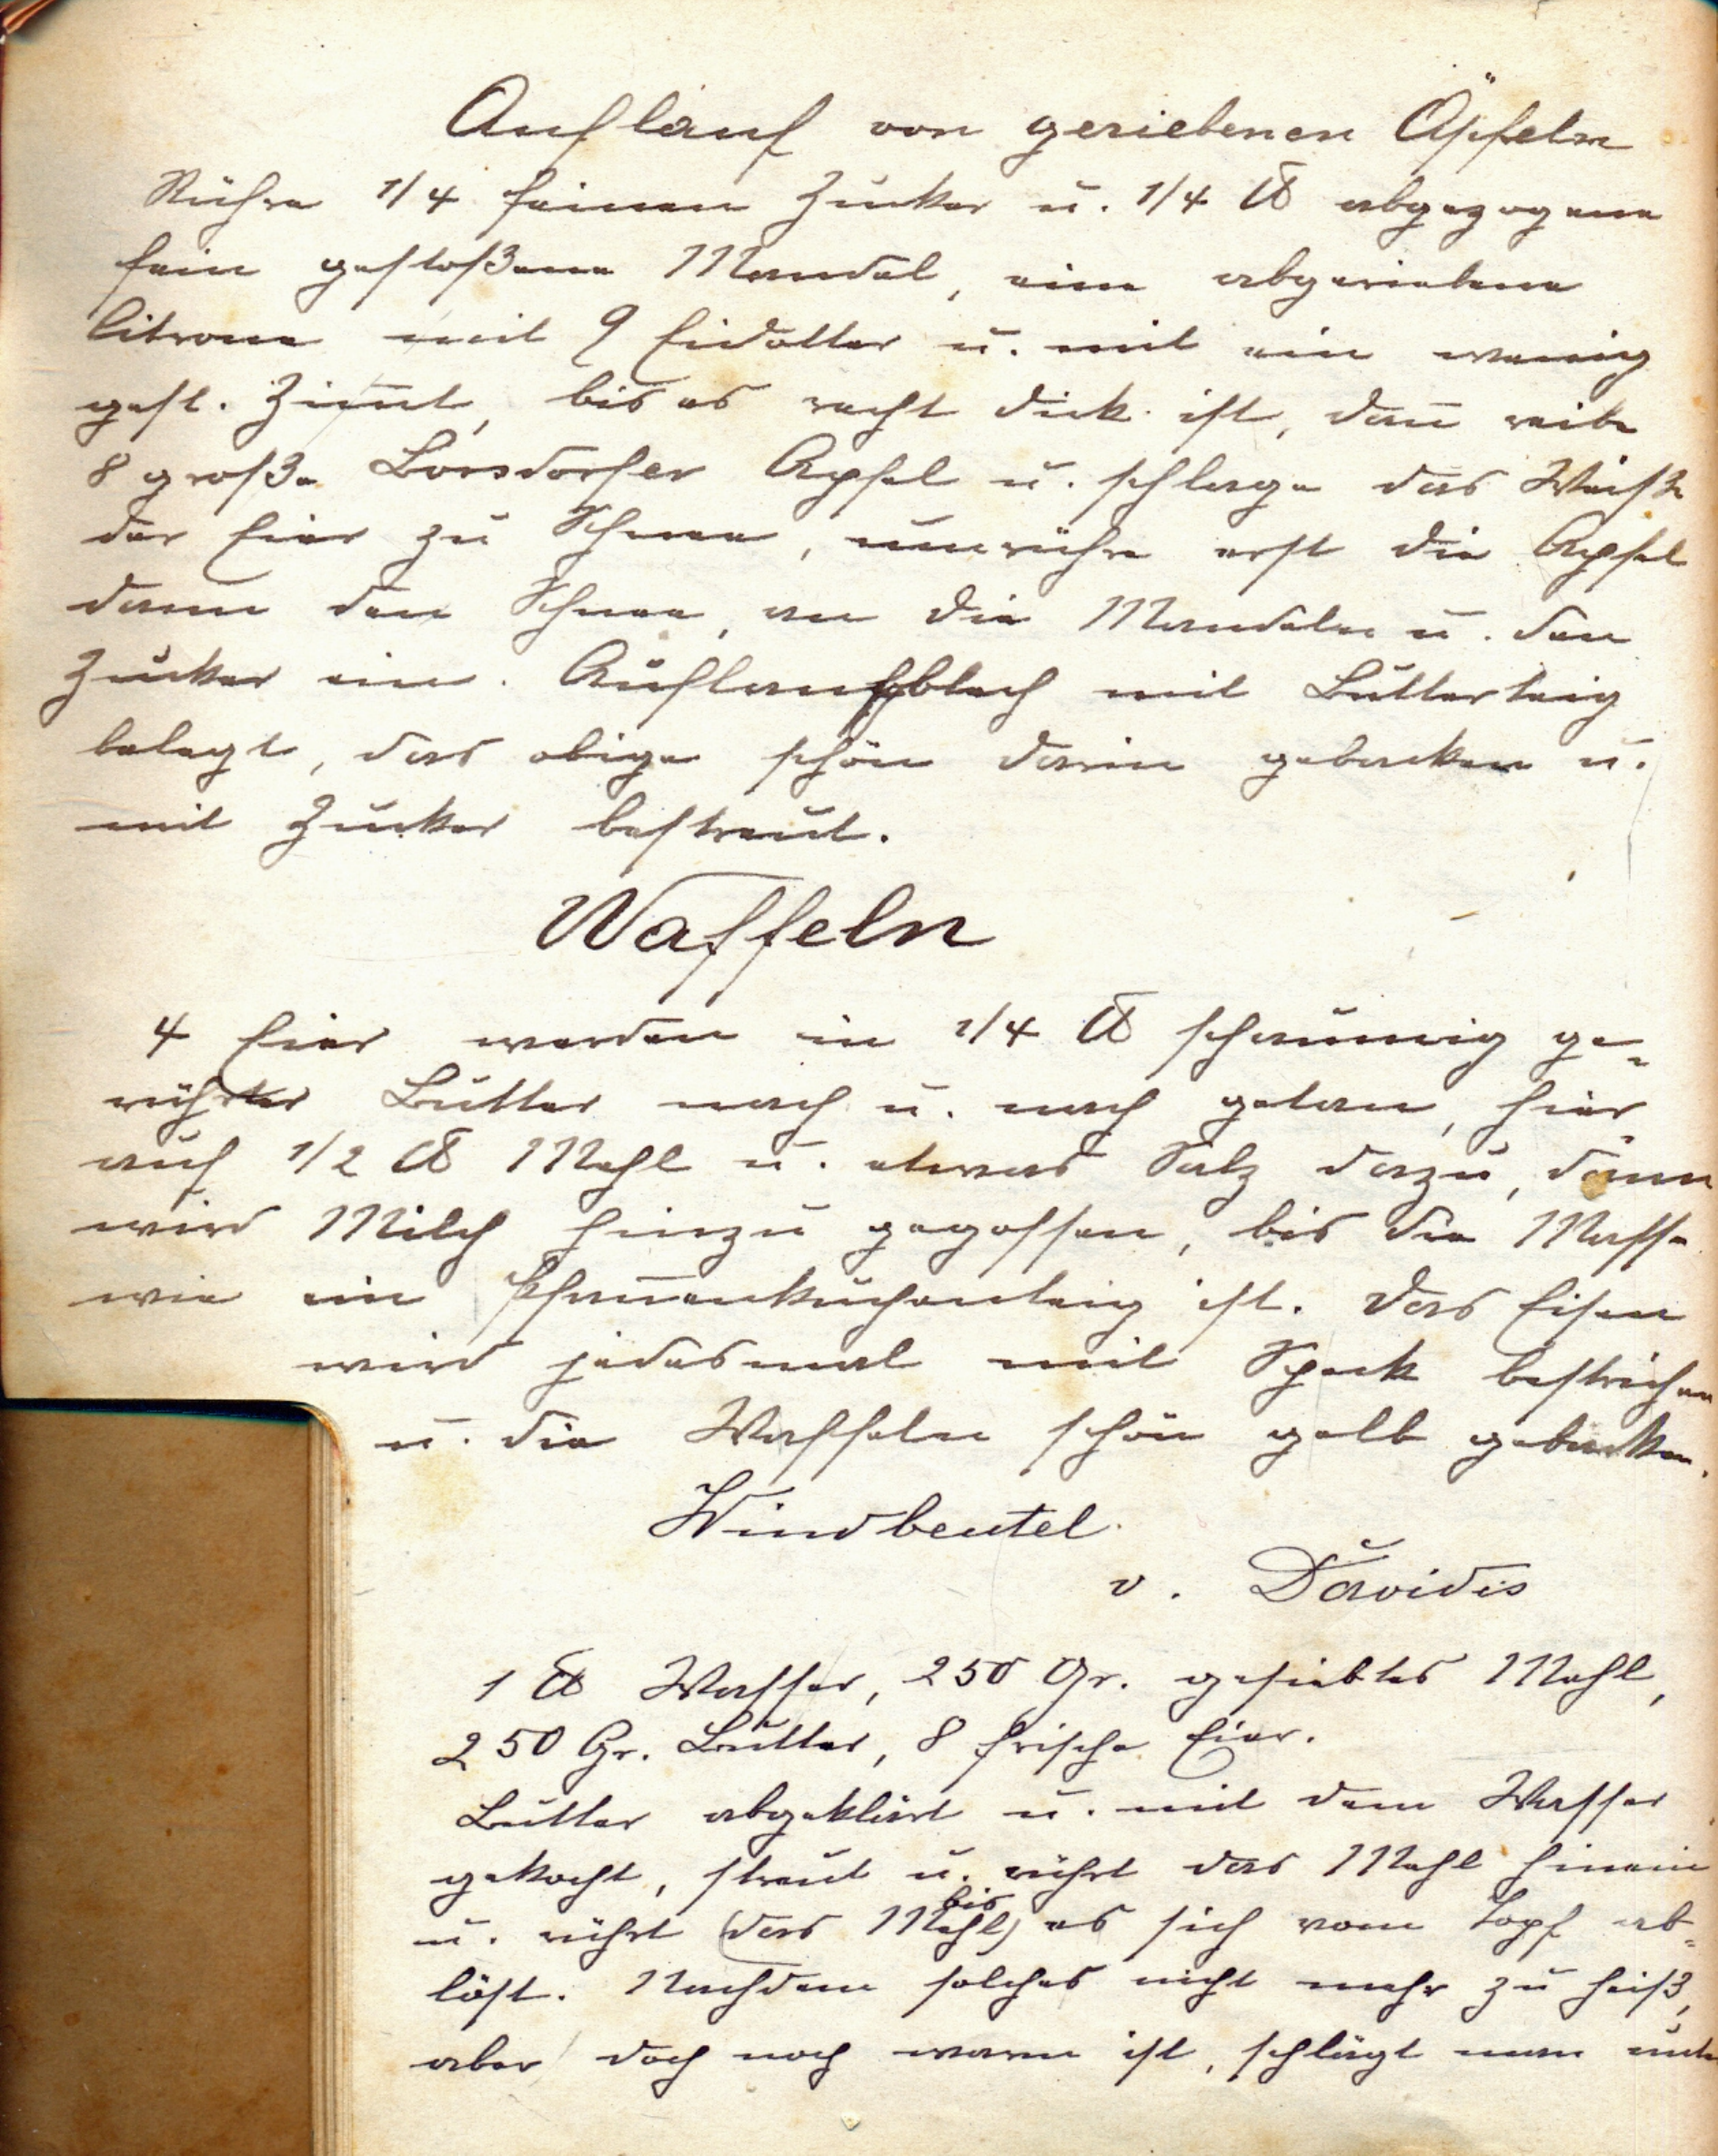 Auflauf von geriebenen Äpfeln
Rühre 1/4 feinen Zucker u. 1/4 ℔ abgezogene
fein gestoßene Mandel, eine abgeriebene
Citrone mit 9 Eidotter u. mit ein wenig
gest. Zimt, bis es recht dick ist, dan̅ reibe
8 große Borsdorfer Apfel u. schlage das Weiße
der Eier zu Schnee, umrühre erst die Apfel
dann den Schnee, an die Mandeln u. den
Zucker ein. Auflaufblech mit Butterteig
belegt, das obige schön darin gebacken u.
mit Zucker bestreut.
Waffeln
4 Eier werden in 1/4 ℔ schaumig ge-
rührter Butter nach u. nach getan, hier
auf 1/2 ℔ Mehl u. etwas Salz dazu, dann
wird Milch hinzu gegossen, bis die Masse
wie ein Pfan̅enkuchenteig ist. Das Eisen
wird jedesmal mit Speck bestrichen
u. die Waffeln schön gelb gebacken.
Windbeutel
v. Davidis
1 ℔ Wasser, 250 Gr. gesiebtes Mehl,
250 Gr. Butter, 8 frische Eier.
Butter abgeklärt u. mit dem Wasser
gekocht, streut u. rührt das Mehl hinein
u. rührt (das Mehl) bis es sich vom Topf ab-
löst. Nachdem solches nicht mehr zu heiß,
aber doch noch warm ist, schlägt man